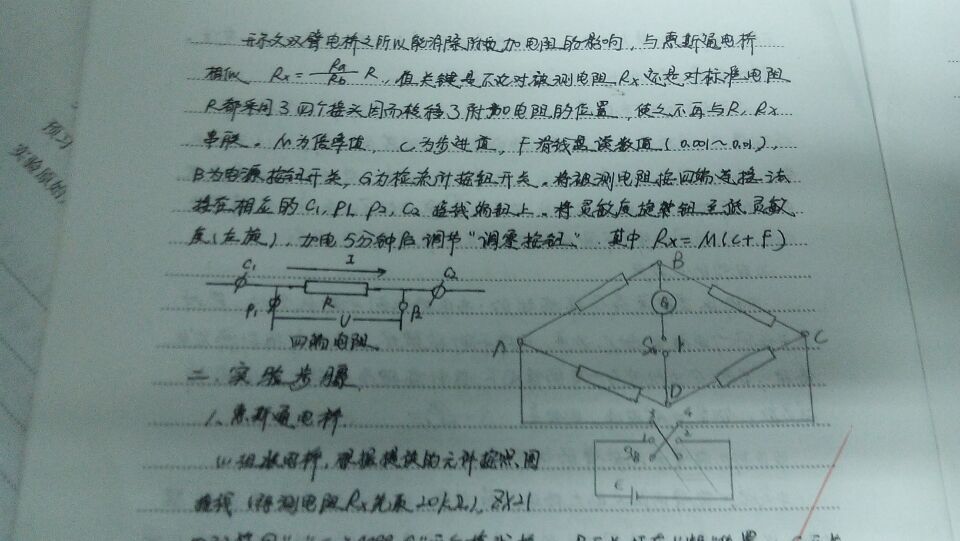 开尔文双臂电桥之所以能消除附加电阻的影响，与惠斯通电桥
相似 Rx = Ra/Rb R，但关键是不论对被测电阻Rx还是对标准电阻
R都采用了四个接头因而转移了附加电阻的位置，使之不再与R，Rx
串联。M为倍率值，C为步进值，F滑线盘读数值（0.001～0.01），
B为电源按钮开关，G为检流计按钮开关。将被测电阻按四端连接法
接在相应的C1，P1，P2，C2接线端钮上。将灵敏度旋钮至低灵敏
度（左旋），加电5分钟后调节“调零按钮”。其中 Rx = M(C+F)
C1 I C2
P1 R P2
U
四端电阻
B
G
A C
D
3 4
1 2
E
二、实验步骤
1、惠斯通电桥
(1) 组装电桥，根据提供的元件按照图
接线（待测电阻Rx先取
预习
实验原始